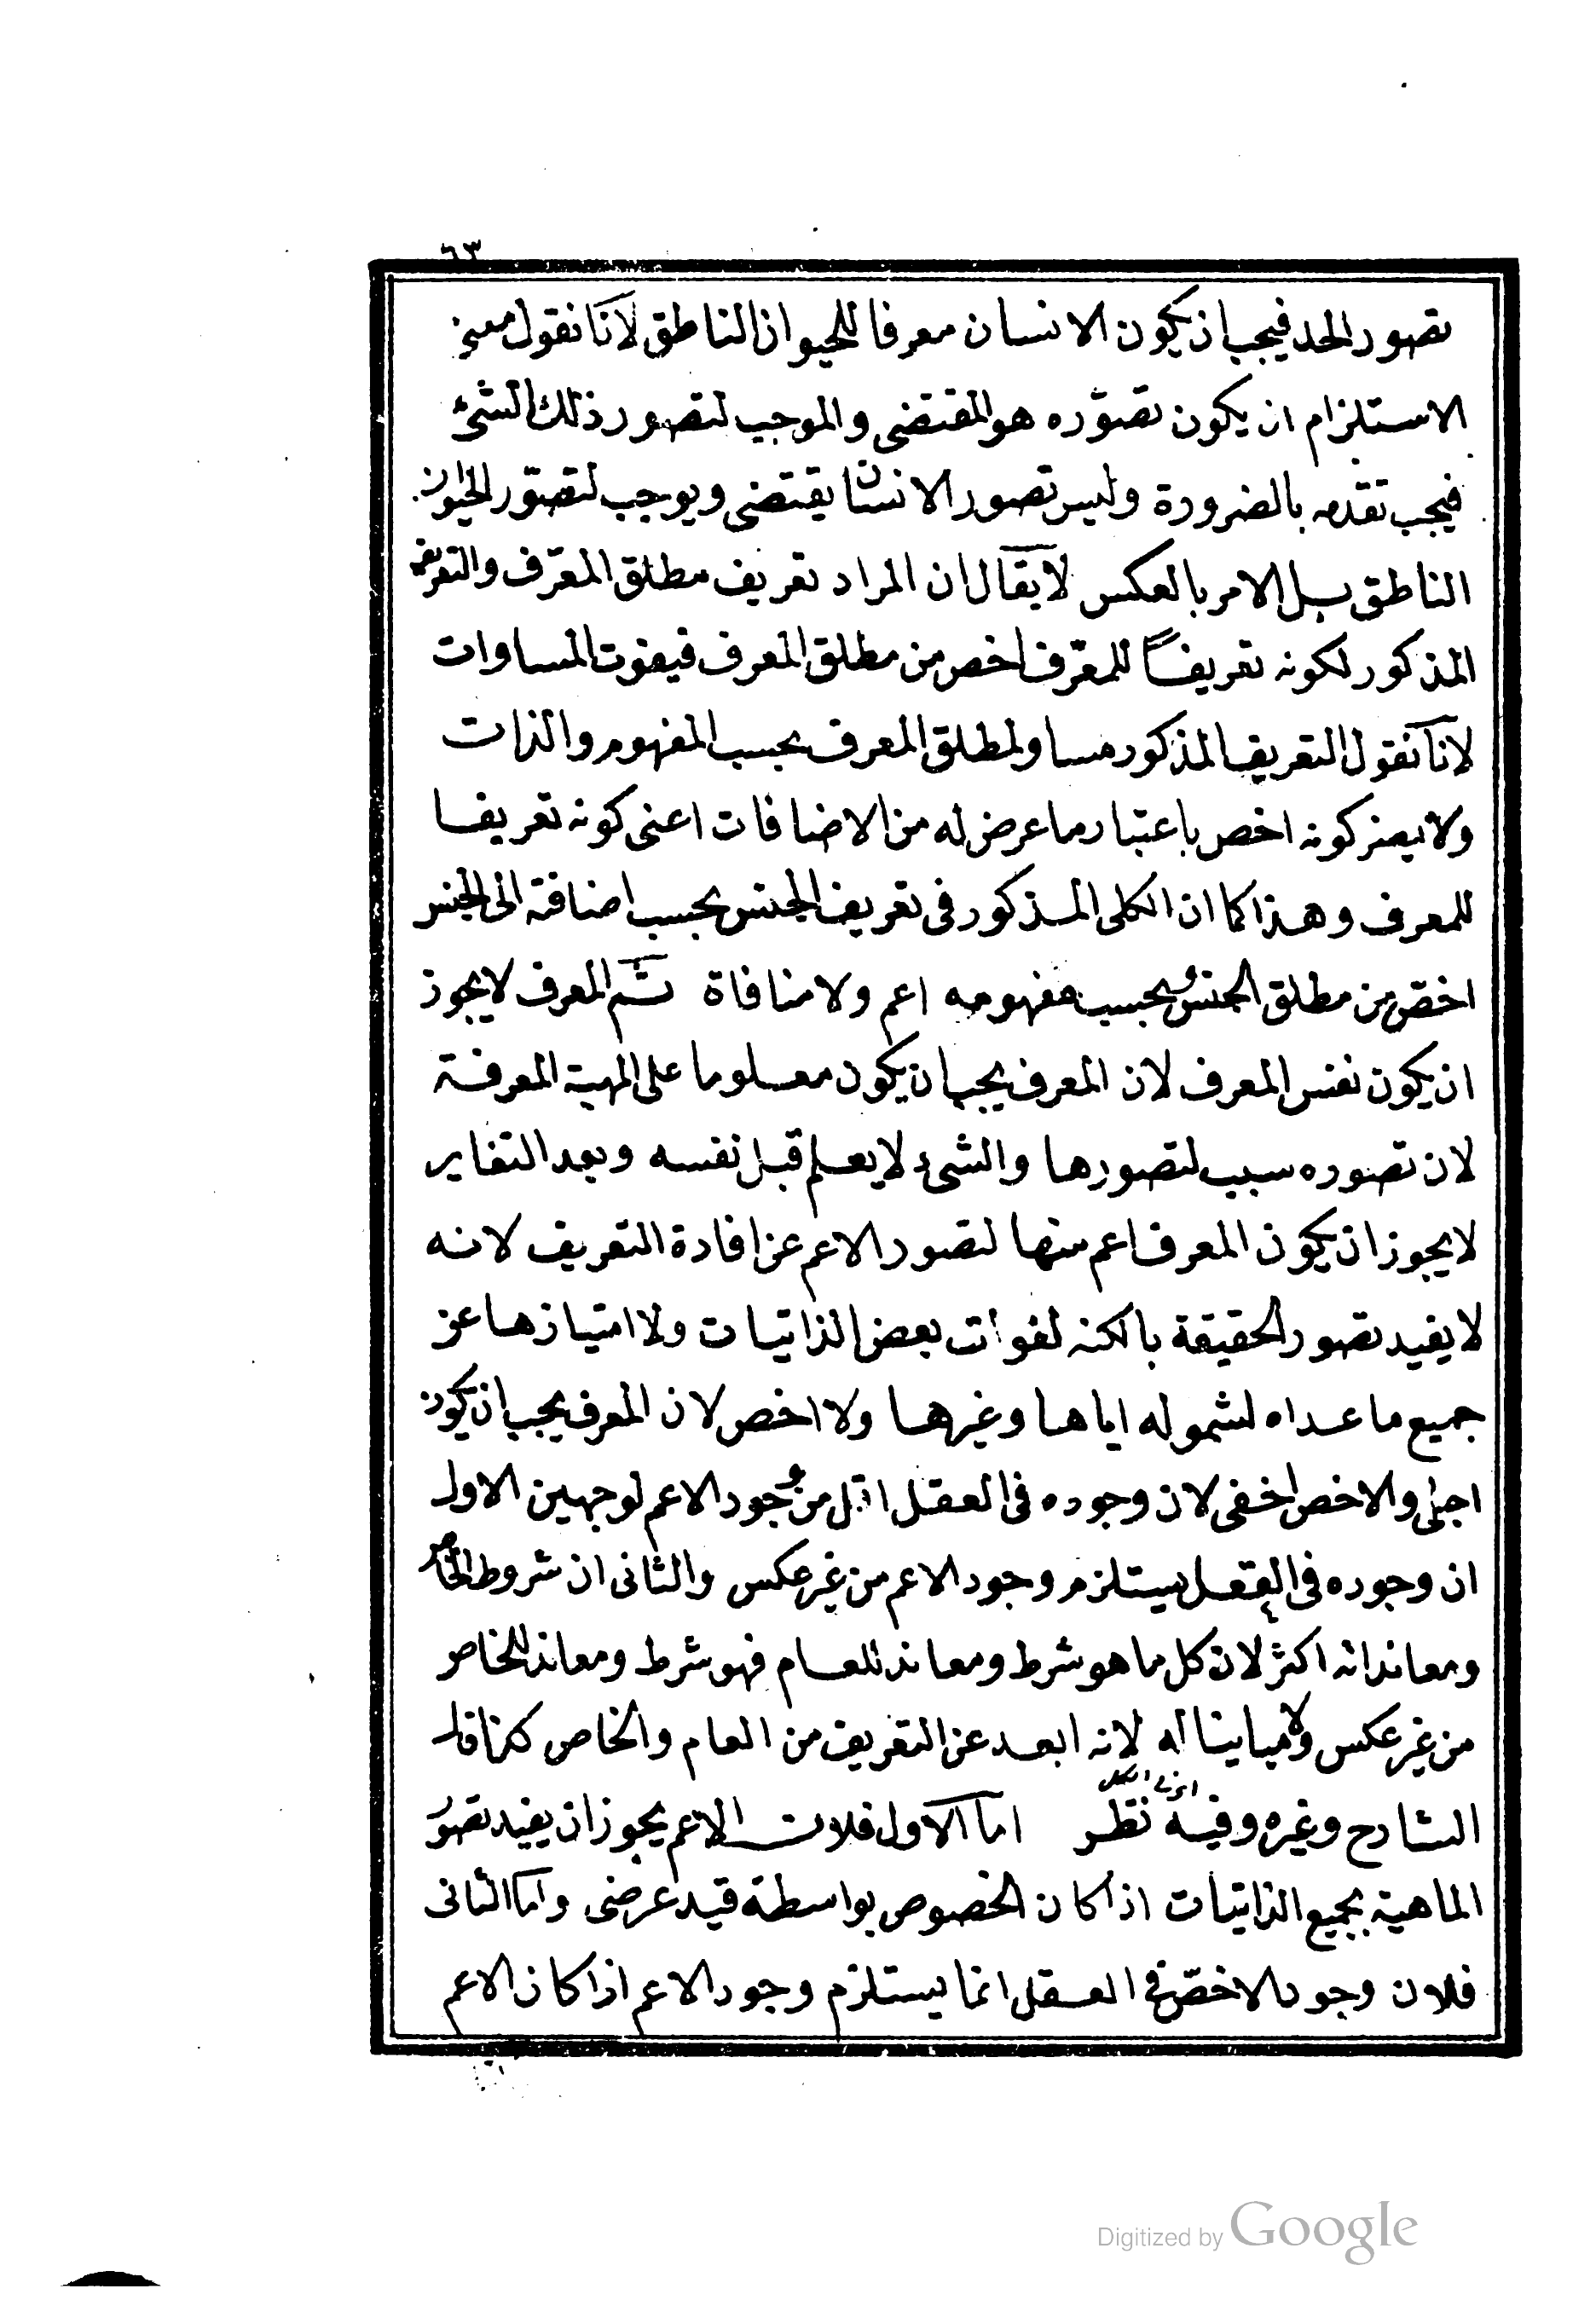 ٦٣
تصور الحد فيجب ان يكون الانسان معرفا للحيوان الناطق لانا نقول معنى
الاستلزام ان يكون تصوّره هو المقتضى والموجب لتصور ذلك الشئ
فيجب تقدمه بالضرورة وليس تصور الانسان يقتضى ويوجب لتصوّر الحيوان
الناطق بل الامر بالعكس لا يقال ان المراد تعريف مطلق المعرّف والتعريف
المذكور لكونه تعريفاً للمعرّف اخص من مطلق المعرف فيفوت المساوات
لانا نقول التعريف المذكور مساو لمطلق المعرف بحسب المفهوم والذات
ولا يضر كونه اخص باعتبار ما عرض له من الاضافات اعنى كونه تعريفا
للمعرف وهذا كما ان الكلى المذكور فى تعريف الجنس بحسب اضافته الى الجنس
اخصّ من مطلق الجنس وبحسب مفهومه اعم ولا منافاة ثم المعرف لا يجوز
ان يكون نفس المعرف لان المعرف يجب ان يكون معلوما على المهية المعرفة
لان تصوره سبب لتصورها والشىء لا يعلم قبل نفسه وبعد التغاير
لا يجوز ان يكون المعرف اعم منها لتصور الاعم عن افادة التعريف لانه
لا يفيد تصور الحقيقة بالكنه لفوات بعض الذاتيات ولا امتيازها عن
جميع ما عداه لشموله اياها وغيرها ولا اخص لان المعرف يجب ان يكون
اجلى والاخص اخفى لان وجوده فى العقل اقل من وجود الاعم لوجهين الاول
ان وجوده فى العقل يستلزم وجود الاعم من غير عكس والثانى ان شروط الخاص
ومعانداته اكثر لان كل ما هو شرط ومعاند للعام فهو شرط ومعاند للخاص
من غير عكس ولا مباينا له لانه ابعد عن التعريف من العام والخاص كذا قال
الشارح وغيره وفيه نظر اما الاول فلان الاعم يجوز ان يفيد تصوّر
الماهية بجميع الذاتيات اذا كان الخصوص بواسطة قيد عرضى واما الثانى
فلان وجود الاخصّ فى العقل انما يستلزم وجود الاعم اذا كان الاعم
Digitized by Google